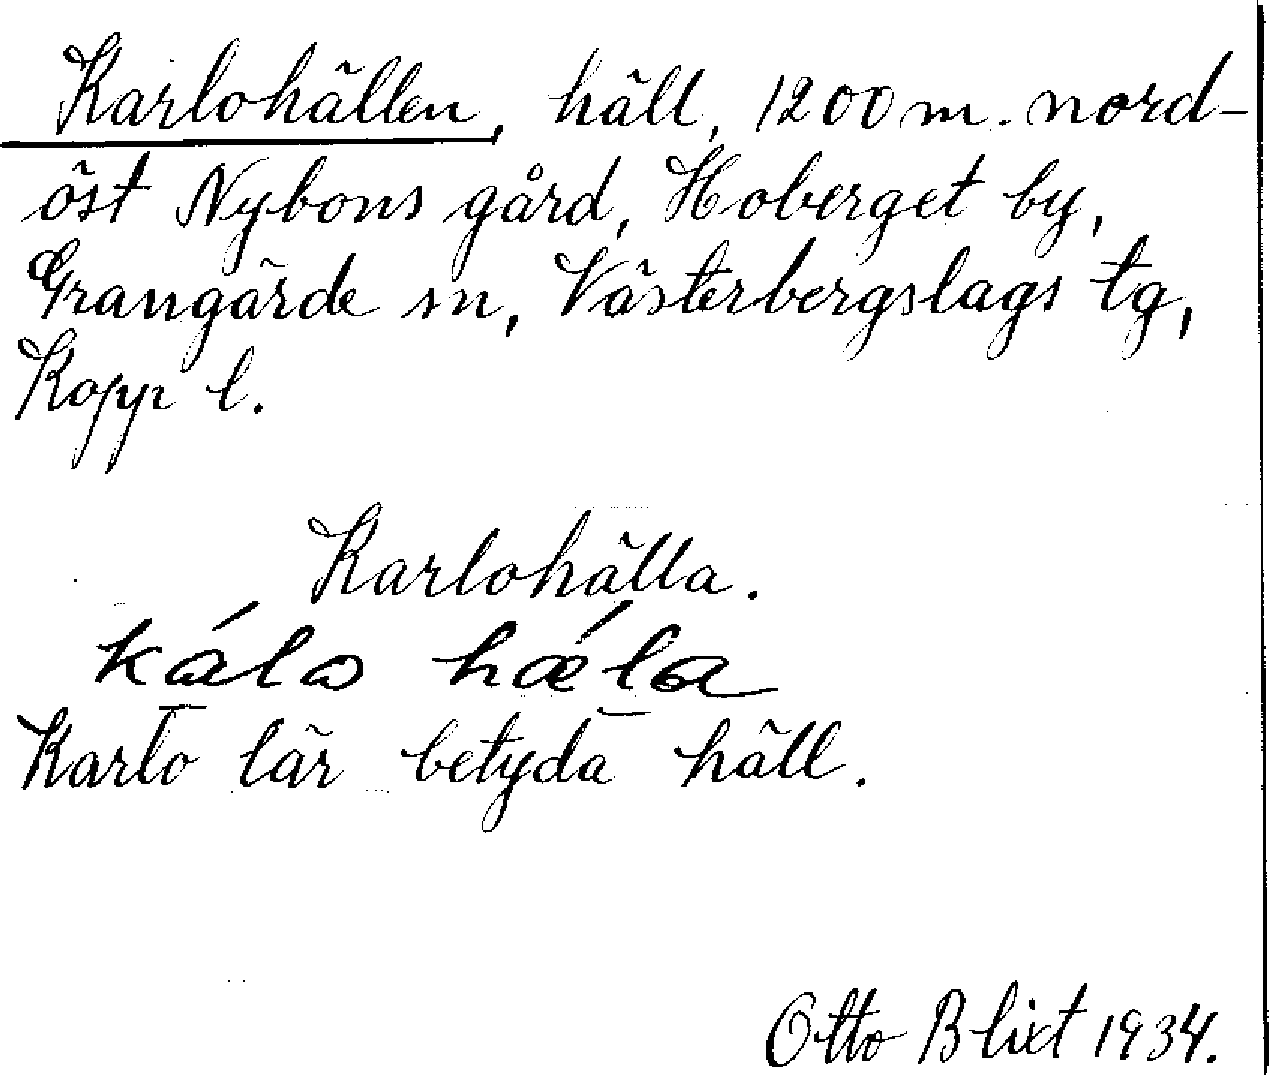 Karlohällen, häll, 1200 m. nord-
öst Nybons gård, Hoberget by,
Grangärde sn, Västerbergslags tg,
Kopp l.
Karlohälla.
kálo hǽla
Karlo lär betyda häll.
Otto Blixt 1934.